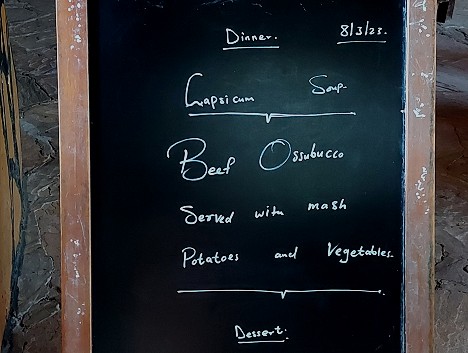 Dinner. 8/3/23.
Capsicum Soup.
Beef Ossubucco
Served with mash
Potatoes and Vegetables.
Dessert: